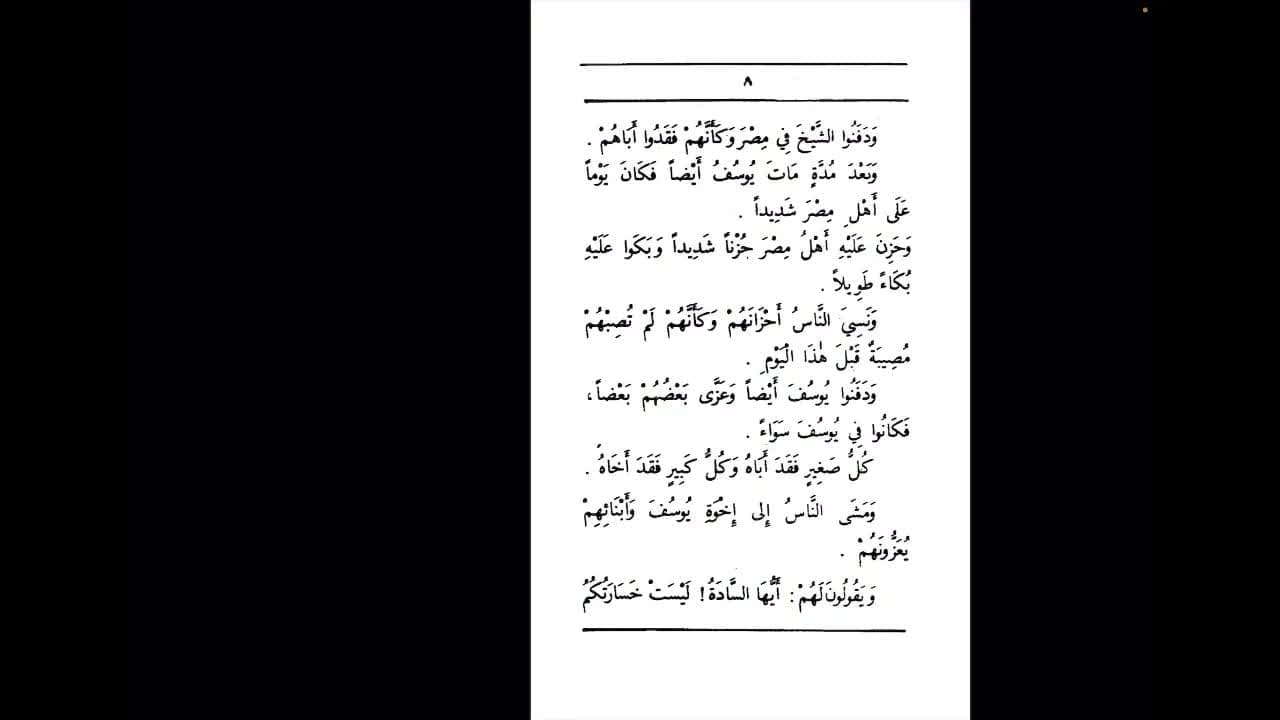 ٨
وَدَفَنُوا الشَّيْخَ فِي مِصْرَ وَكَأَنَّهُمْ فَقَدُوا أَبَاهُمْ .
وَبَعْدَ مُدَّةٍ مَاتَ يُوسُفُ أَيْضاً فَكَانَ يَوْماً
عَلَى أَهْلِ مِصْرَ شَدِيداً .
وَحَزِنَ عَلَيْهِ أَهْلُ مِصْرَ حُزْناً شَدِيداً وَبَكَوا عَلَيْهِ
بُكَاءً طَوِيلاً .
وَنَسِيَ النَّاسُ أَحْزَانَهُمْ وَكَأَنَّهُمْ لَمْ تُصِبْهُمْ
مُصِيبَةٌ قَبْلَ هٰذَا الْيَوْمِ .
وَدَفَنُوا يُوسُفَ أَيْضاً وَعَزَّى بَعْضُهُمْ بَعْضاً،
فَكَانُوا فِي يُوسُفَ سَوَاءً .
كُلُّ صَغِيرٍ فَقَدَ أَبَاهُ وَكُلُّ كَبِيرٍ فَقَدَ أَخَاهُ .
وَمَشَى النَّاسُ إِلى إِخْوَةِ يُوسُفَ وَأَبْنَائِهِمْ
يُعَزُّونَهُمْ .
وَيَقُولُونَ لَهُمْ: أَيُّهَا السَّادَةُ! لَيْسَتْ خَسَارَتُكُمُ